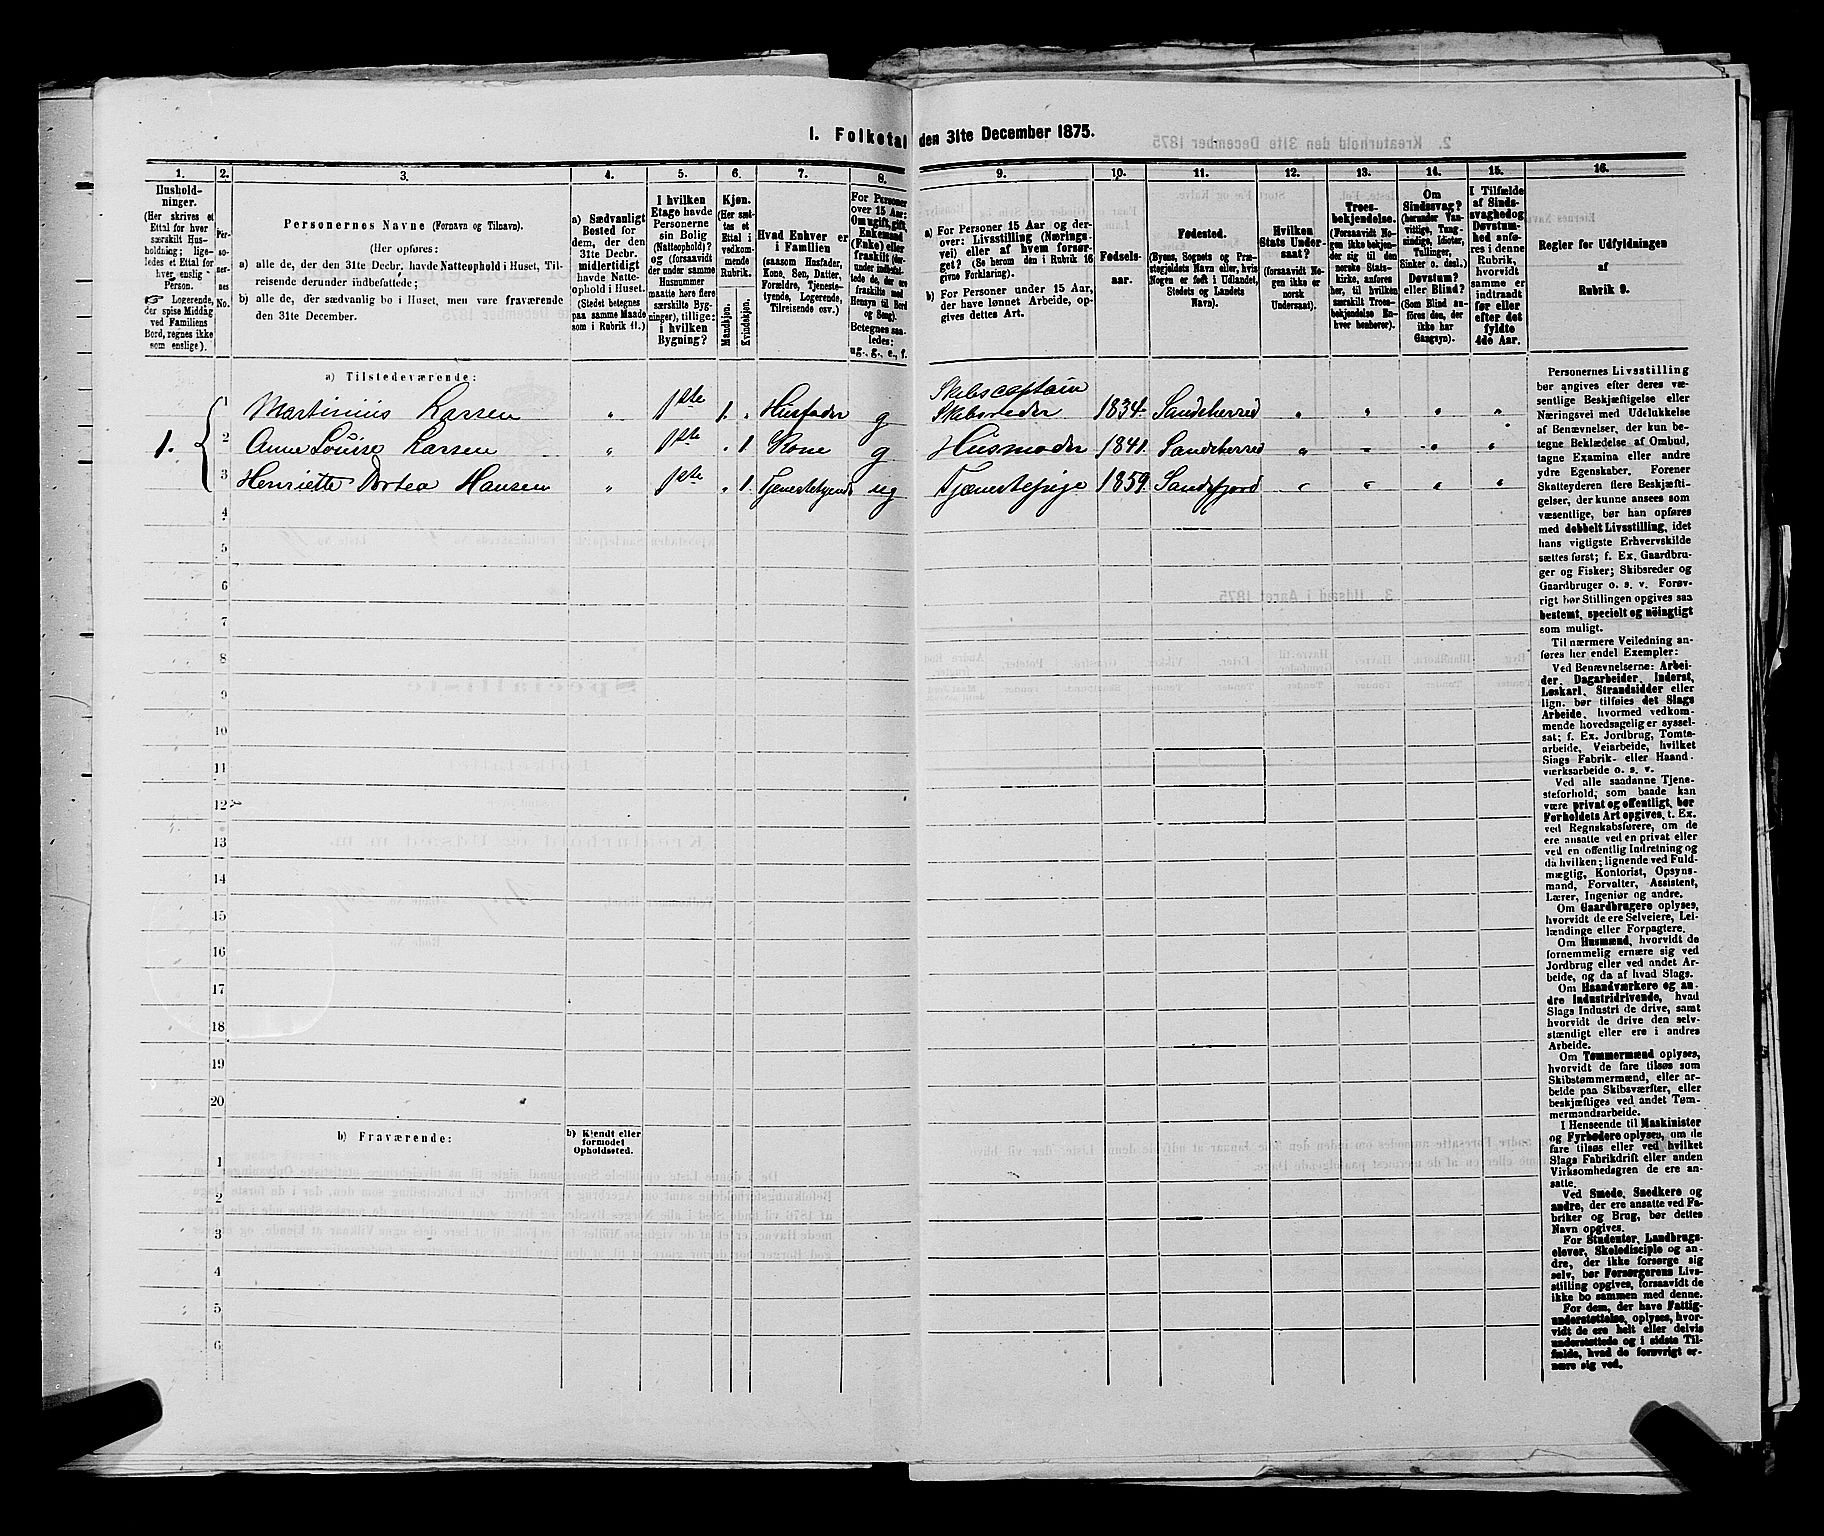 I. Folketal den 31te December 1875.
1.
2.
3.
4.
5.
6.
7.
8.
9.
10.
11.
12.
13.
14.
15.
16.
Husholdninger.
(Her skrives et
Ettal for hver
særskilt Husholdning;
ligeledes et Ettal for
hver enslig
Person.
☞ Logerende,
der spise Middag
ved Familiens
Bord, regnes ikke
som enslige).
Personernes
No.
Personernes Navne (Fornavn og Tilnavn).
(Her opføres:
a) alle de, der den 31te Decbr. havde Natteophold i Huset, Tilreisende derunder indbefattede;
b) alle de, der sædvanlig bo i Huset, men vare fraværende
den 31te December.
a) Sædvanligt
Bosted for
dem, der den
31te Decbr.
midlertidigt
havde Natteophold i Huset.
(Stedet betegnes
paa samme Maade
som i Rubrik 11.)
I hvilken
Etage havde
Personerne
sin Bolig
(Natteophold)?
og (forsaavidt
der under samme
Husnummer
maatte høre flere
særskilte Bygninger), tillige:
i hvilken
Bygning?
Kjøn.
(Her sættes et
Ettal i
vedkommende
Rubrik.
Mandkjøn.
Kvindekjøn.
Hvad Enhver er
i Familien
(saasom Husfader,
Kone, Søn, Datter,
Forældre, Tjenestetyende, Logerende,
Tilreisende osv.)
For Personer
over 15 Aar:
Om ugift, gift,
Enkemand
(Enke) eller
fraskilt
Betegnes saaledes:
ug., g., e., f.
a) For Personer 15 Aar og derover: Livsstilling (Næringsvei) eller af hvem forsørget? (Se herom den i Rubrik 16
givne Forklaring).
b) For Personer under 15 Aar,
der have lønnet Arbeide, opgives dettes Art.
Fødselsaar.
Fødested.
(Byens, Sognets og Præstegjeldets Navn eller, hvis
Nogen er født i Udlandet,
Stedets og Landets
Navn).
Hvilken
Stats Undersaat?
(forsaavidt Nogen ikke er
norsk
Undersaat).
Troesbekjendelse.
(Forsaavidt Nogen ikke bekjender sig til den
norske Statskirke, anføres
her, til hvilken
særskilt Troesbekjendelse Enhver henhører).
Om
Sindssvag?
(herunder Vanvittige, Tungsindige, Idioter,
Tullinger,
Sinker o. desl.)
Døvstum?
eller Blind?
(Som Blind anføres den, der
ikke har
Gangsyn).
I Tilfælde
af Sindssvaghed og
Døvstumhed anføres i denne
Rubrik,
hvorvidt
samme er
indtraadt
før eller
efter det
fyldte
4de Aar.
Regler for Udfyldningen
af
Rubrik 9.
a) Tilstedeværende:
1. 1 Martinius Larsen „ 1ste 1. „ Husfader g Skibscaptain Skibsreder 1834. Sandeherred „ „ „ „
2 Anne Louise Larsen „ 1ste „ 1 Kone g Husmoder 1841. Sandeherred „ „ „ „
3 Henriette Dortea Hansen „ 1ste „ 1. Tjenestetyende ug Tjenestepige 1859. Sandefjord „ „ „ „
4
5
6
7
8
9
10
11
12
13
14
15
16
17
18
19
20
b) Fraværende:
b) Kjendt eller
formodet
Opholdssted.
1
2
3
4
5
6
Personernes Livsstilling
bør angives efter deres væsentlige Beskjæftigelse eller
Næringsvei med Udelukkelse
af Benævnelser, der kun betegne Beklædelse af Ombud,
tagne Examina eller andre
ydre Egenskaber. Forener
Skatteyderen flere Beskjæftigelser, der kunne ansees som
væsentlige, bør han opføres
med dobbelt Livsstilling, idet
hans vigtigste Erhvervskilde
sættes først; f. Ex. Gaardbruger og Fisker; Skibsreder og
Gaardbruger o. s. v. Forøvrigt bør Stillingen opgives saa
bestemt, specielt og nöiagtigt
som muligt.
Til nærmere Veiledning anføres her endel Exempler:
Ved Benævnelserne: Arbeider, Dagarbeider, Inderst,
Løskarl, Strandsidder eller
lign. bør tilføies det Slags
Arbeide, hvormed vedkommende hovedsagelig er sysselsat; f. Ex. Jordbrug, Tomtearbeide, Veiarbeide, hvilket
Slags Fabrik- eller Haandværksarbeide o. s. v.
Ved alle saadanne Tjenesteforhold, som baade kan
være privat og offentligt, bør
Forholdets Art opgives, t. Ex.
ved Regnskabsførere, om de
ere ansatte ved en privat eller
ved en offentlig Indretning og
da hvilken; lignende ved Fuldmægtig, Kontorist, Opsynsmand, Forvalter, Assistent,
Lærer, Ingeniør og andre.
Om Gaardbrugere oplyses,
hvorvidt de ere Selveiere, Leilændinge eller Forpagtere.
Om Husmænd, hvorvidt de
fornemmelig ernære sig ved
Jordbrug eller ved andet Arbeide, og da af hvad Slags.
Om Haandværkere og andre Industridrivende, hvad
Slags Industri de drive, samt
hvorvidt de drive den selvstændigt eller ere i andres
Arbeide.
Om Tømmermænd oplyses,
hvorvidt de fare tilsøs som
Skibstømmermænd, eller arbeide paa Skibsværfter, eller
beskjæftiges ved andet Tømmermandsarbeide.
I Henseende til Maskinister
og Fyrbødere oplyses, om de
fare tilsøs eller ved hvilket
Slags Fabrikdrift eller anden
Virksomhedsgren de ere ansatte.
Ved Smede, Snedkere og
andre, der ere ansatte ved Fabriker og Brug, bør dettes
Navn opgives.
For Studenter, Landbrugselever, Skoledisciple og andre, der ikke forsørge sig
selv, bør Forsørgerens Livsstilling opgives, forsaavidt de
ikke bo sammen med denne.
For dem, der have Fattigunderstøttelse, oplyses, hvorvidt de ere helt eller delvis
understøttede og i sidste Tilfælde, hvad de forøvrigt ernære sig ved.